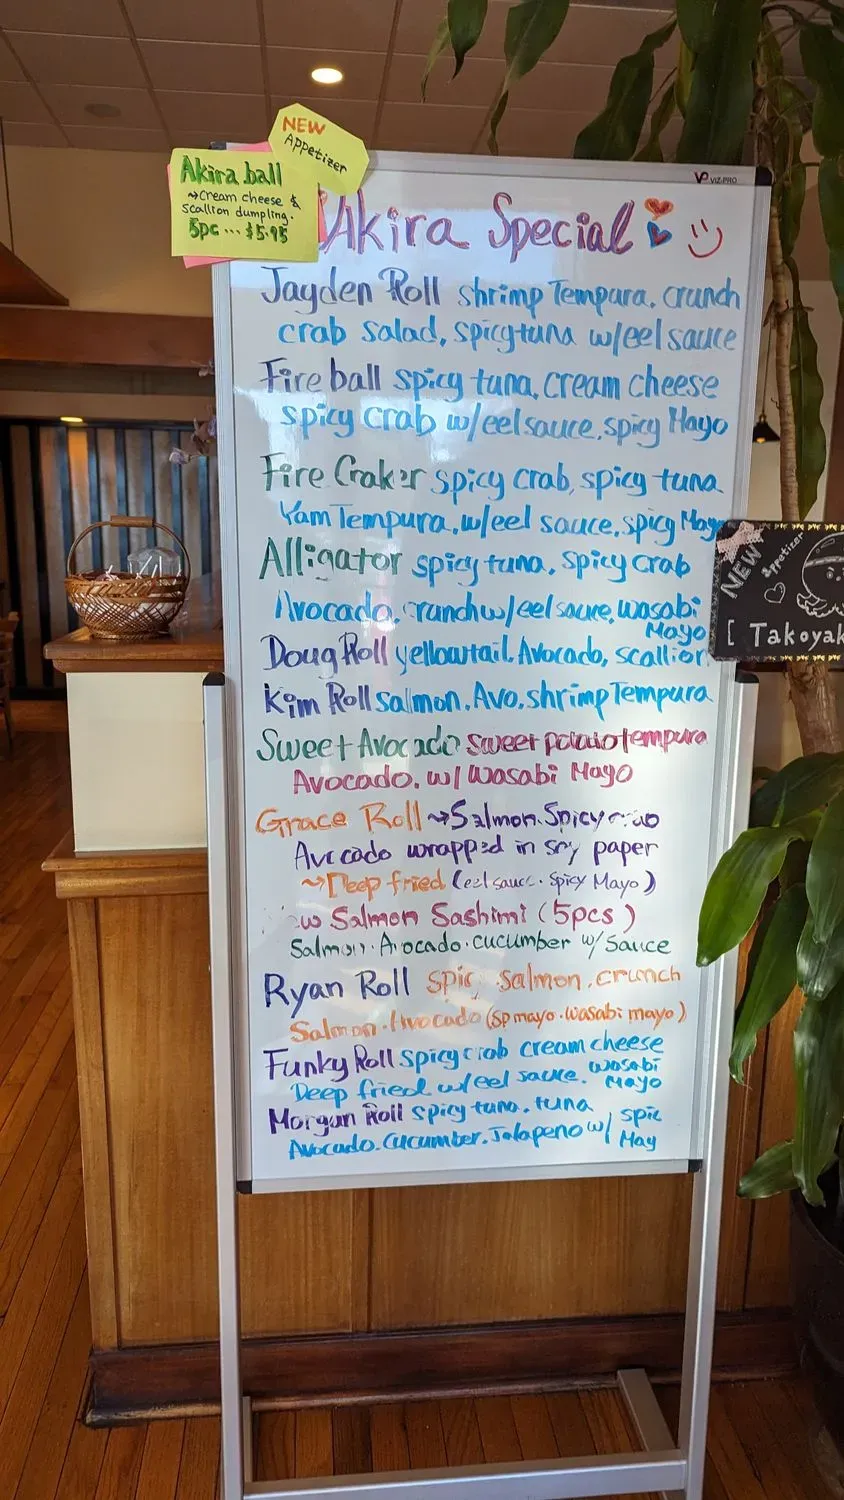 NEW
Appetizer
Akira ball
→Cream cheese &
scallion dumpling.
5pc ... $5.95
VIZ-PRO
Akira Special
Jayden Roll shrimp Tempura. crunch
crab salad, spicy tuna w/eel sauce
Fire ball spicy tuna, cream cheese
spicy crab w/eel sauce, spicy Mayo
Fire Craker spicy crab, spicy tuna
Yam Tempura, w/eel sauce, spicy Mayo
Alligator spicy tuna, spicy crab
Avocado, crunch w/eel sauce, wasabi
Mayo
Doug Roll yellowtail. Avocado, scallion
Kim Roll salmon. Avo. shrimp Tempura
Sweet Avocado sweet potato tempura
Avocado. w/ Wasabi Mayo
Grace Roll → Salmon. Spicy crab
Avocado wrapped in soy paper
→ Deep fried (eel sauce. Spicy Mayo)
Salmon Sashimi (5pcs)
Salmon. Avocado. cucumber w/ Sauce
Ryan Roll Salmon. crunch
Salmon. Avocado (sp mayo. wasabi mayo)
Funky Roll spicy crab cream cheese
Deep fried w/eel sauce. wasabi
Mayo
Morgan Roll spicy tuna. tuna
Avocado. Cucumber. Jalapeno w/ spic
May
NEW
Appetizer
[ Takoyak